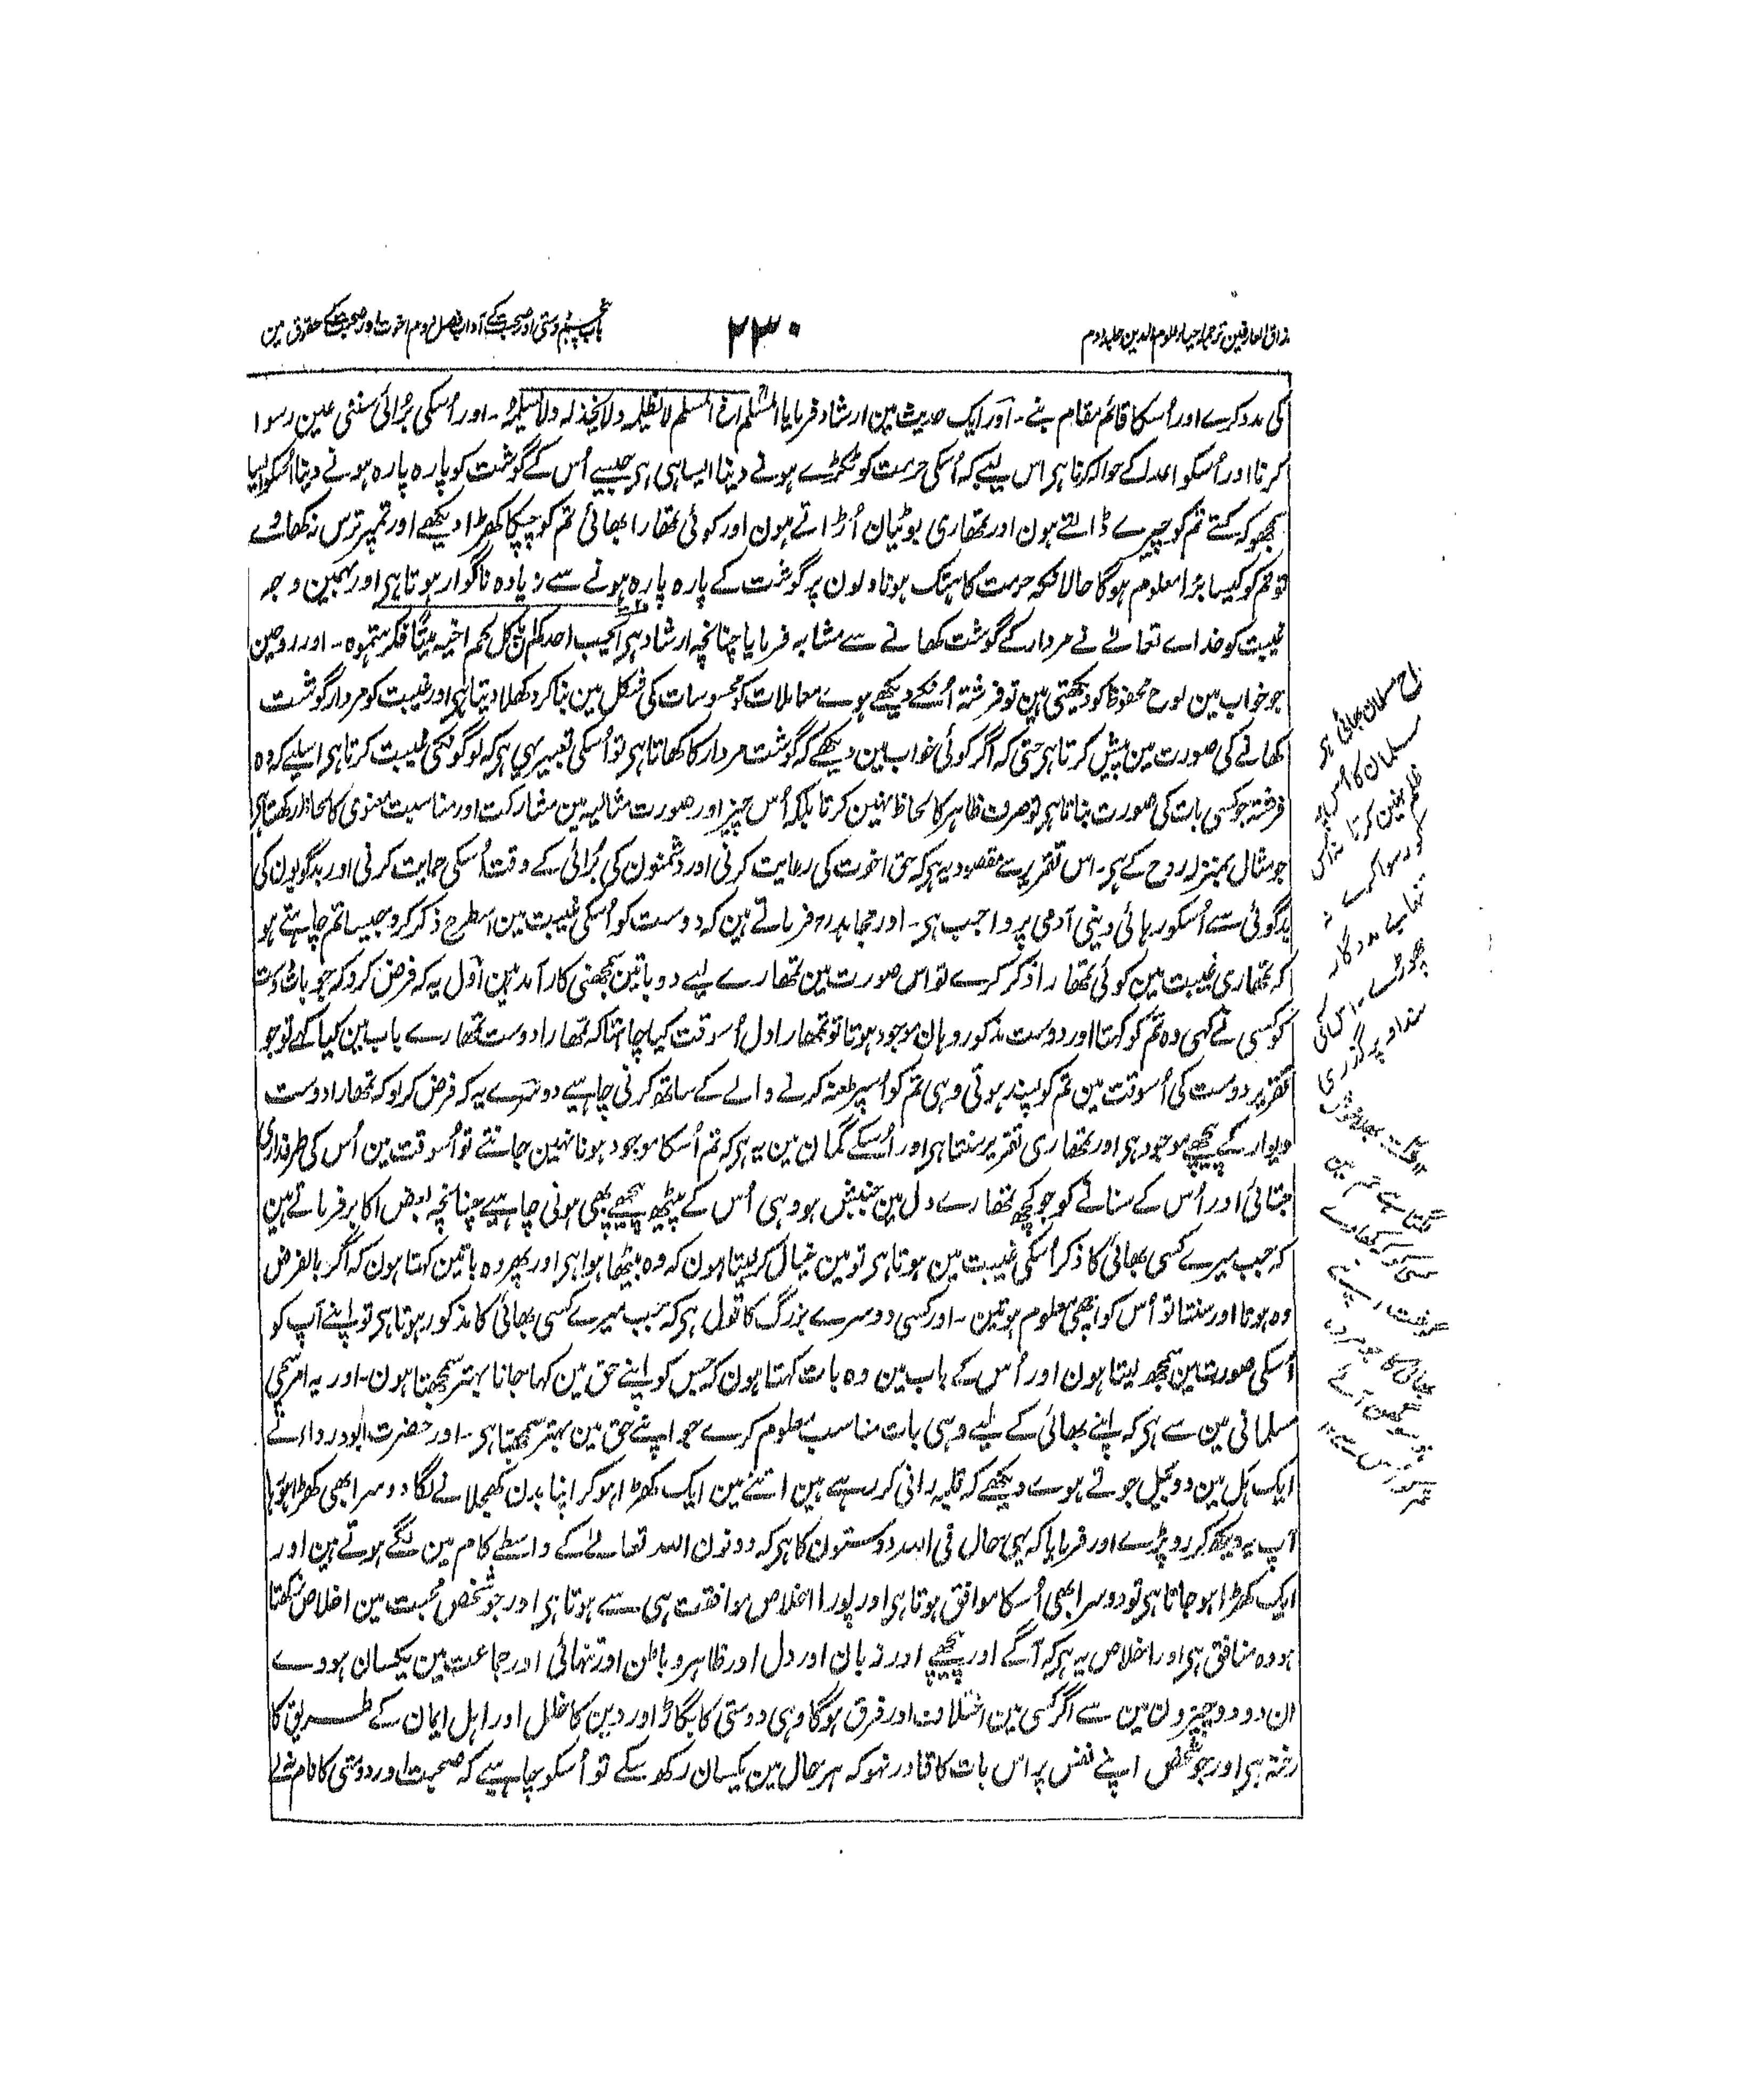 مذاق العارفین ترجمہ احیاء علوم الدین جلد دوم
۲۳۰
باب پنجم دوستی اور صحبت کے آداب فصل دوم اخوت اور صحبت کے حقوق مین
کی مدد کرے اور اُسکا قائم مقام بنے۔ اور ایک حدیث مین ارشاد فرمایا المسلم اخ المسلم لا یظلمہ ولا یخذلہ ولا یسلمہ۔ اور اُسکی بُرائی سننی عین رسوا
کرنا اور اُسکو اعدا کے حوالہ کرنا ہی اس لیے کہ اُسکی حرمت کو ٹکڑے ہونے دینا ایسا ہی ہی جیسے اُس کے گوشت کو پارہ پارہ ہونے دینا اسکو ایسا
سمجھو کہ کتے تم کو چیرے ڈالتے ہون اور تمھاری بوٹیان اُڑاتے ہون اور کوئی تمھارا بھائی تم کو چپکا کھڑا دیکھے اور تمپر ترس نکھاوے
تو تم کو کیسا بڑا معلوم ہوگا حالانکہ حرمت کا ہتک ہونا دلون پر گوشت کے پارہ پارہ ہونے سے زیادہ ناگوار ہوتا ہی اور بہمین وجہ
غیبت کو خداے تعالے نے مردار کے گوشت کھانے سے مشابہ فرمایا چنانچہ ارشاد ہی ایحب احدکم ان یاکل لحم اخیہ میتا فکرہتموہ۔ اور روحین
جو خواب مین لوح محفوظ کو دیکھتی ہین تو فرشتہ اُنکے دیکھے ہوے معاملات کو محسوسات کی شکل مین بنا کر دکھلا دیتا ہی اور غیبت کو مردار گوشت
کھانے کی صورت مین پیش کرتا ہی حتی کہ اگر کوئی خواب مین دیکھے کہ گوشت مردار کا کھاتا ہی تو اُسکی تعبیر یہی ہی کہ لوگونکی غیبت کرتا ہی اسلیے کہ وہ
فرشتہ جو کسی بات کی صورت بناتا ہی تو صرف ظاہر کا لحاظ نہین کرتا بلکہ اُس چیز اور صورت مثالیہ مین مشارکت اور مناسبت معنوی کا لحاظ رکھتا ہی
جو مثال بمنزلہ روح کے ہی۔ اس تقریر سے مقصود یہ ہی کہ حق اخوت کی رعایت کرنی اور دشمنون کی بُرائی کے وقت اُسکی حمایت کرنی اور بدگویون کی
بدگوئی سے اُسکو رہائی دینی آدمی پر واجب ہی۔ اور مجاہد رہ فرماتے ہین کہ دوست کو اُسکی غیبت مین اسطرح ذکر کرو جیسا تم چاہتے ہو
کہ تمھاری غیبت مین کوئی تمھارا ذکر کرے تو اس صورت مین تمھارے لیے دو باتین سمجھنی کارآمد ہین اول یہ کہ فرض کرو کہ جو بات دوست
کو کسی نے کہی وہ تم کو کہتا اور دوست مذکور وہان موجود ہوتا تو تمھارا دل اُسوقت کیا چاہتا کہ تمھارا دوست تمھارے باب مین کیا کہے تو جو
تقریر دوست کی اُسوقت مین تم کو پسند ہوتی وہی تم کو اُسپر طعنہ کرنے والے کے ساتھ کرنی چاہیے دوسرے یہ کہ فرض کر لو کہ تمھارا دوست
دیوار کے پیچھے موجود ہی اور تمھاری تقریر سنتا ہی اور اُسکے گمان مین یہ ہی کہ تم اُسکا موجود ہونا نہین جانتے تو اُسوقت مین اُس کی طرفداری
جتانی اور اُس کے سنانے کو جو کچھ تمھارے دل مین جنبش ہو وہی اُس کے پیٹھ پیچھے بھی ہونی چاہیے چنانچہ بعض اکابر فرماتے ہین
کہ جب میرے کسی بھائی کا ذکر اُسکی غیبت مین ہوتا ہی تو مین خیال کر لیتا ہون کہ وہ بیٹھا ہوا ہی اور پھر وہ باتین کہتا ہون کہ اگر بالفرض
وہ ہوتا اور سنتا تو اُس کو اچھی معلوم ہوتین۔ اور کسی دوسرے بزرگ کا قول ہی کہ جب میرے کسی بھائی کا مذکور ہوتا ہی تو اپنے آپ کو
اُسکی صورت مین سمجھ لیتا ہون اور اُس کے باب مین وہ بات کہتا ہون کہ جس کو اپنے حق مین کہا جانا بہتر سمجھتا ہون۔ اور یہ امر سچی
مسلمانی مین سے ہی کہ اپنے بھائی کے لیے وہی بات مناسب معلوم کرے جو اپنے حق مین بہتر سمجھتا ہی۔ اور حضرت ابودرداء نے
ایک ہل مین دو بیل جوتے ہوے دیکھے کہ قلبہ رانی کر رہے ہین اتنے مین ایک کھڑا ہو کر اپنا بدن کھجلانے لگا دوسرا بھی کھڑا ہو رہا
آپ یہ دیکھ کر رو پڑے اور فرمایا کہ یہی حال فی اللہ دوستون کا ہی کہ دونون اللہ تعالے کے واسطے کام مین لگے ہوتے ہین اور
ایک کھڑا ہو جاتا ہی تو دوسرا بھی اُسکا موافق ہوتا ہی اور پورا اخلاص موافقت ہی سے ہوتا ہی اور جو شخص محبت مین اخلاص نرکھتا
ہو وہ منافق ہی اور اخلاص یہ ہی کہ آگے اور پیچھے اور زبان اور دل اور ظاہر و باطن اور تنہائی اور جماعت مین یکسان ہووے
ان دو دو چیزون مین سے اگر کسی مین اختلاف اور فرق ہوگا وہی دوستی کا بگاڑ اور دین کا خلل اور اہل ایمان کے طریق کا
رخنہ ہی اور جو شخص اپنے نفس پر اس بات کا قادر نہو کہ ہر حال مین یکسان رکھ سکے تو اُسکو چاہیے کہ صحبت اور دوستی کا نام نہ لے
مسلمان بھائی ہی
مسلمان کا اُس پر
ظلم نہین کرتا نہ اُس
کو رسوا کرے نہ